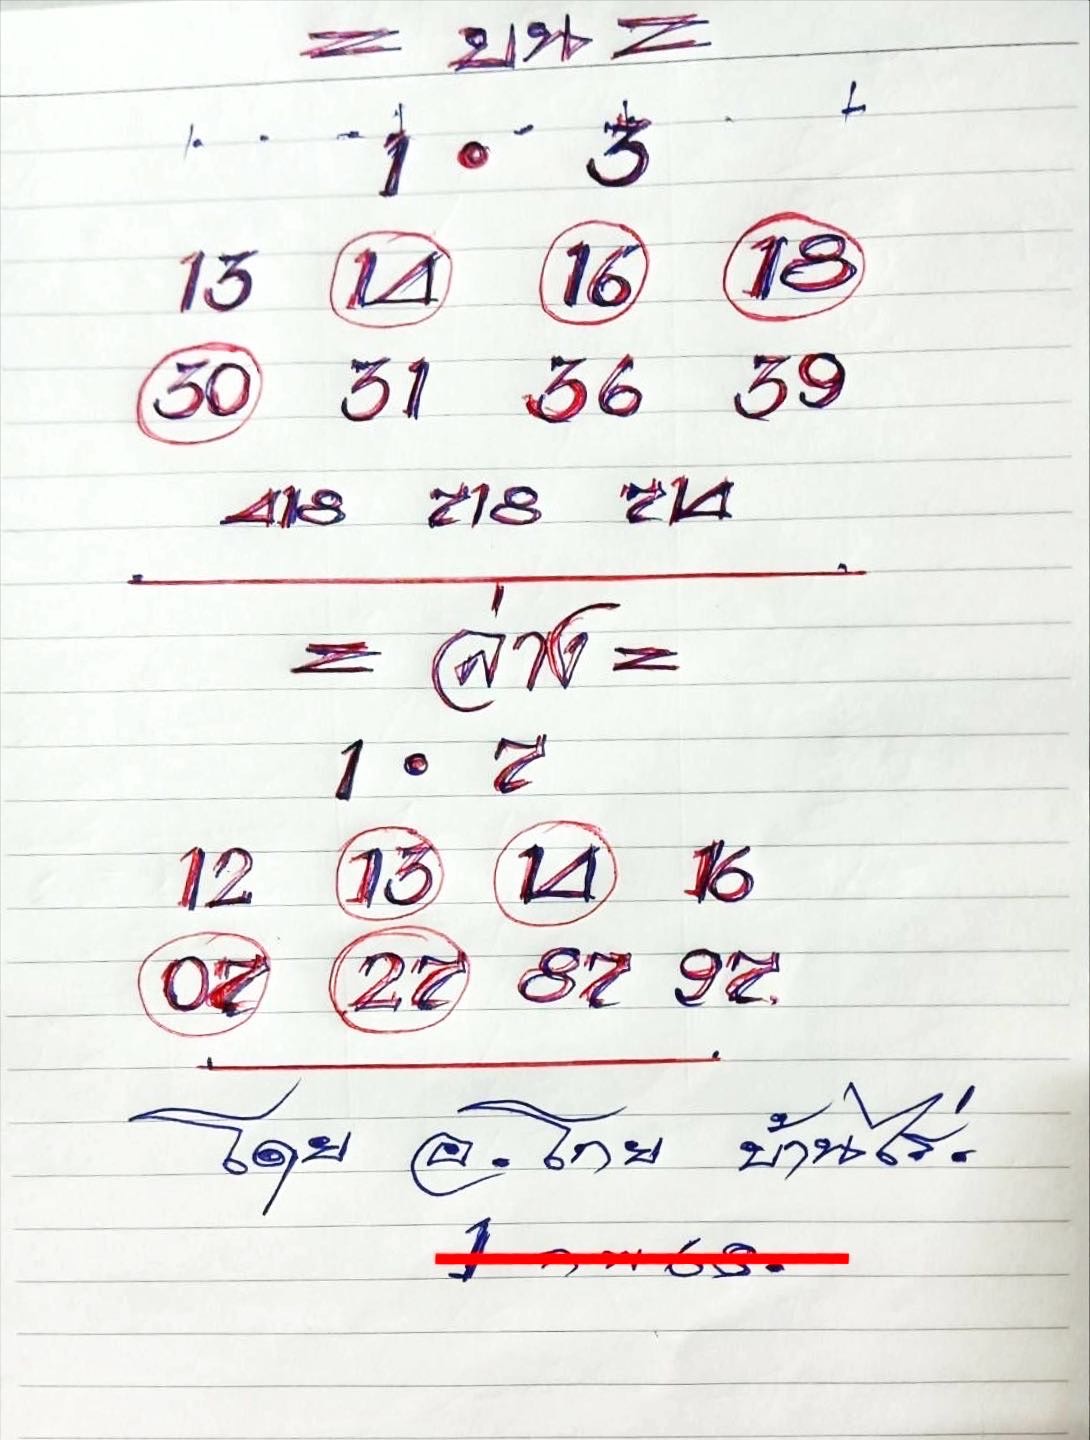 = บน =
1 • 3
13 14 16 18
30 31 36 39
418 718 714
= ล่าง =
1 • 7
12 13 14 16
07 27 87 97
โดย อ. โทย บ้านไร่.
1